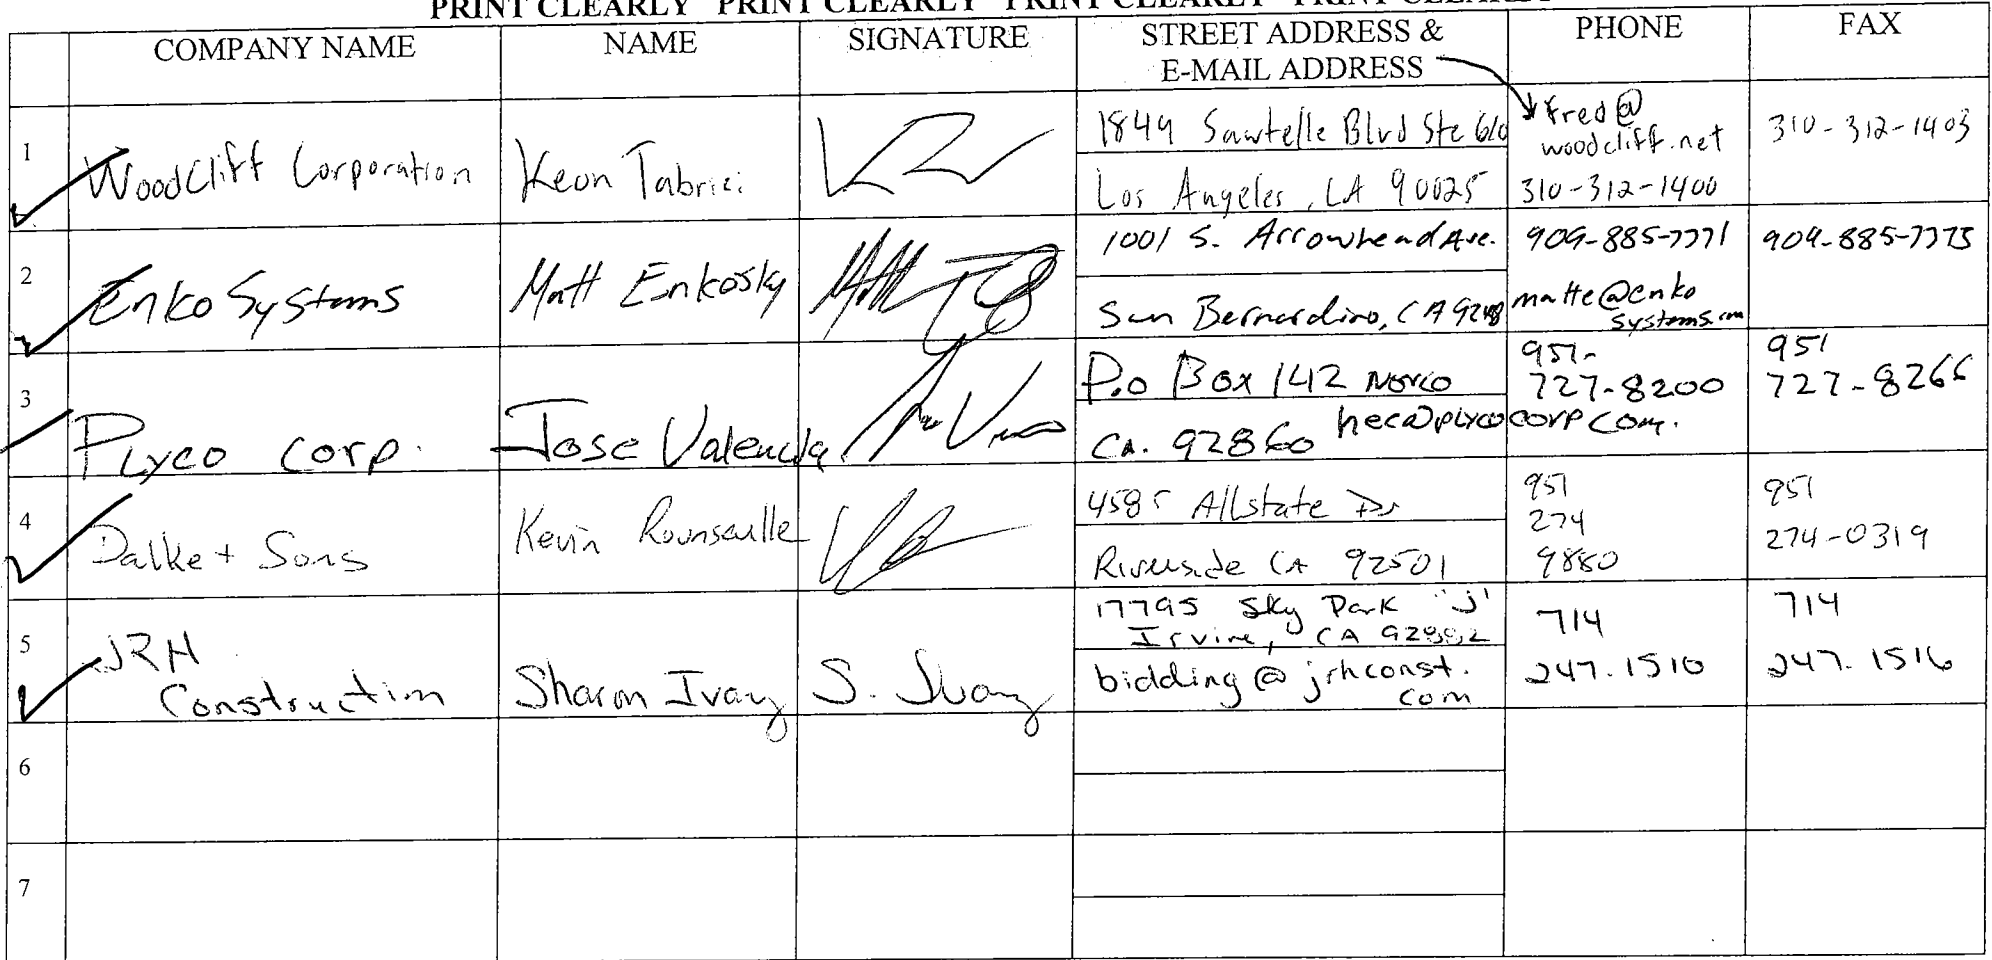 PRINT CLEARLY PRINT CLEARLY PRINT CLEARLY PRINT CLEARLY
COMPANY NAME NAME SIGNATURE STREET ADDRESS & E-MAIL ADDRESS PHONE FAX
1
Woodcliff Corporation
Keon Tabrizi
1849 Sawtelle Blvd Ste 610
Los Angeles, CA 90025
fred@
woodcliff.net
310-312-1400
310-312-1403
2
Enko Systems
Matt Enkosky
1001 S. Arrowhead Ave.
San Bernardino, CA
909-885-7771
matte@enko
systems.com
909-885-7773
3
Plyco Corp.
Jose Valencia
P.o Box 142 Norco
CA. 92860 heca@plycocorp com.
951-
727-8200
951
727-8266
4
Dalke + Sons
Kevin Rounsaulle
4585 Allstate Dr
Riverside CA 92501
951
274
9880
951
274-0319
5
JRH
Construction
Sharon Ivany
S. Ivany
17795 Sky Park "J"
Irvine, CA
bidding@jrhconst.
com
714
247.1510
714
247.1516
6
7